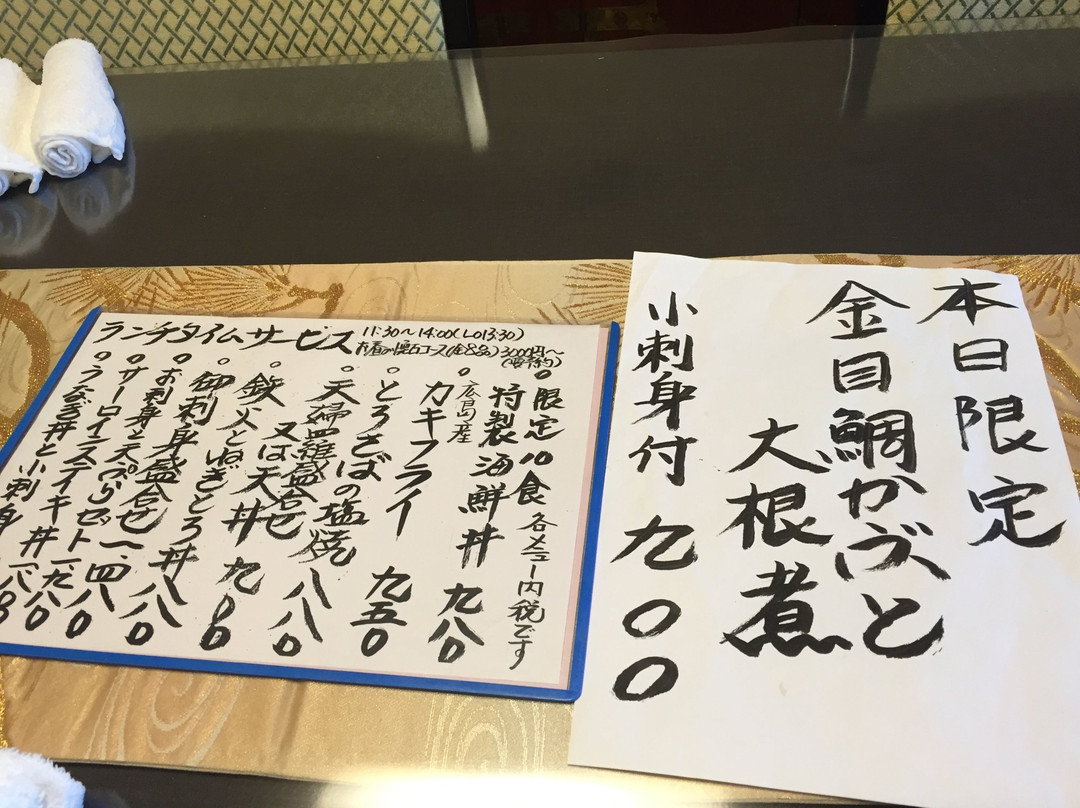 本日限定
金目鯛かぶと
大根煮
小刺身付 九〇〇
ランチタイムサービス 11:30〜14:00(LO13:30)
お昼の懐石コース(全8品)3000円〜
(要予約)
限定10食 各メニュー内税です
特製海鮮丼 九八〇
広島産
カキフライ 九五〇
とろさばの塩焼 八八〇
天婦羅盛合せ
又は天丼 九八〇
鉄火とねぎとろ丼 八八〇
御刺身盛合せ 一、四八〇
お刺身と天ぷらセット
サーロインステイキ丼
うなぎ丼と小刺身